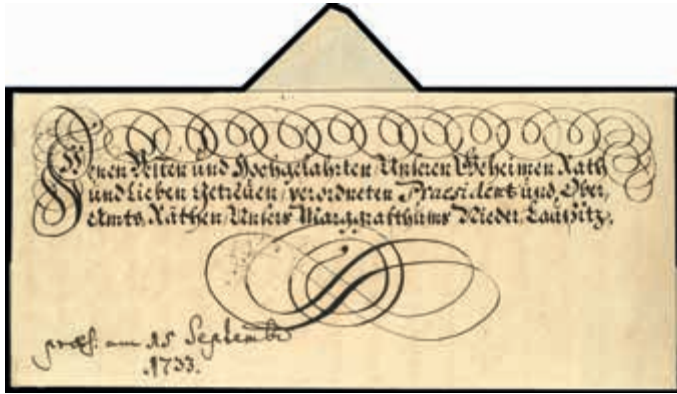 Denen Vesten und Hochgelahrten Unseren Geheimen Rath
und Lieben Getreüen, verordneten Praesident und Ober,
Amts, Räthen, Unsers Marggrafthums Nieder, Laußitz.
præs. am 15 Septembr
1733.